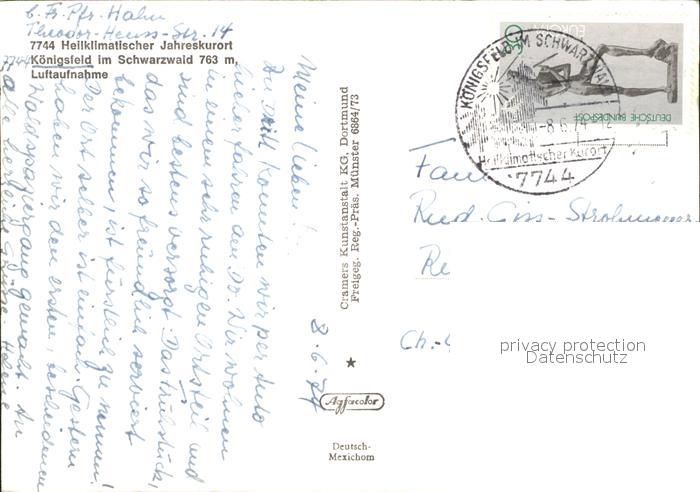 b. Fr. Pfr. Hahn
Theodor-Heuss-Str. 14
7744 Heilklimatischer Jahreskurort
Königsfeld im Schwarzwald 763 m,
Luftaufnahme
7744
8.6.74
Meine Lieben!
Zu dritt konnten wir per Auto
hierher fahren den Do. Wir wohnen
in einem sehr ruhigen Ortsteil und
sind bestens versorgt. Das Frühstück,
das wir so freundlich serviert
bekommen, ist fürstlich zu nennen!
Der Ort selber ist einfach. Gestern
haben wir den ersten, bescheidenen
Waldspaziergang gemacht. An
alle herzliche Grüsse. Helene
Cramers Kunstanstalt KG, Dortmund
Freigeg. Reg.-Präs. Münster 6864/73
Agfacolor
Deutsch-
Mexichom
EUROPA
DEUTSCHE BUNDESPOST
KÖNIGSFELD IM SCHWARZWALD
-8.6.74-12
Heilklimatischer Kurort
7744
Fam
Rud. Giss-Strohm
Re
Ch.-
privacy protection
Datenschutz